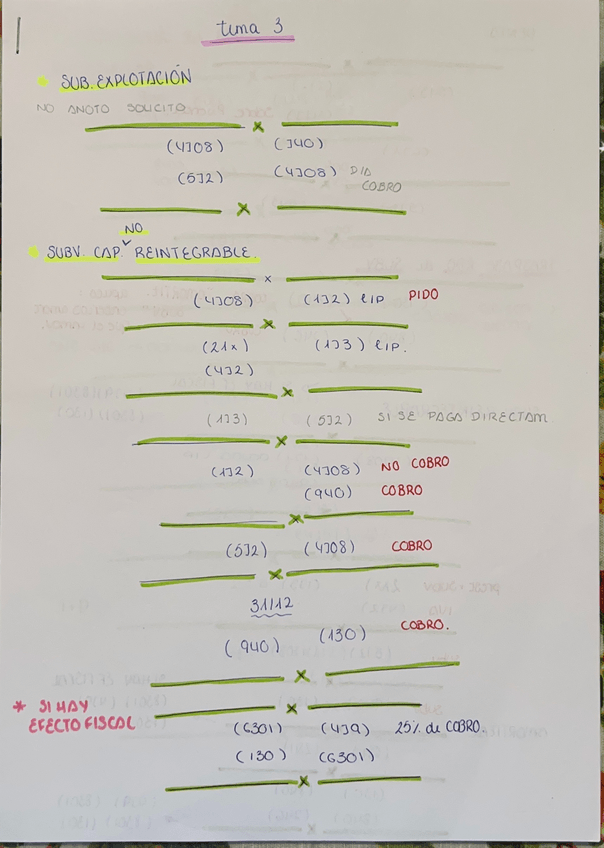 tema 3
* SUB. EXPLOTACIÓN
NO ANOTO SOLICITO
x
(4308) (740)
(572) (4708) DIA COBRO
x
NO
* SUBV. CAP. REINTEGRABLE.
x
(4708) (172) lIP PIDO
x
(21x) (173) lIP.
(472)
x
(173) (572) SI SE PAGA DIRECTAM.
x
(172) (4708) NO COBRO
(940) COBRO
x
(572) (4708) COBRO
x
31/12
(940) (130) COBRO.
x
x
* SI HAY EFECTO FISCAL
(6301) (479) 25% de COBRO.
(130) (6301)
x